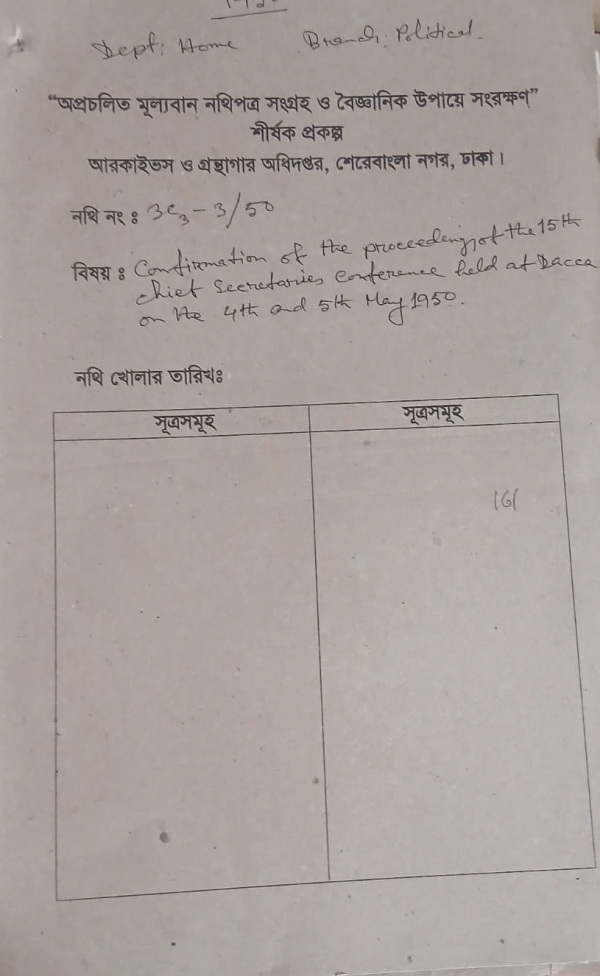 Dept: Home Branch: Political.
“অপ্রচলিত মূল্যবান নথিপত্র সংগ্রহ ও বৈজ্ঞানিক উপায়ে সংরক্ষণ”
শীর্ষক প্রকল্প
আরকাইভস ও গ্রন্থাগার অধিদপ্তর, শেরেবাংলা নগর, ঢাকা।
নথি নং ঃ 3C3 - 3/50
বিষয় ঃ Confirmation of the proceedings of the 15th
Chief Secretaries conference held at Dacca
on the 4th and 5th May 1950.
নথি খোলার তারিখঃ
সূত্রসমূহ সূত্রসমূহ
161